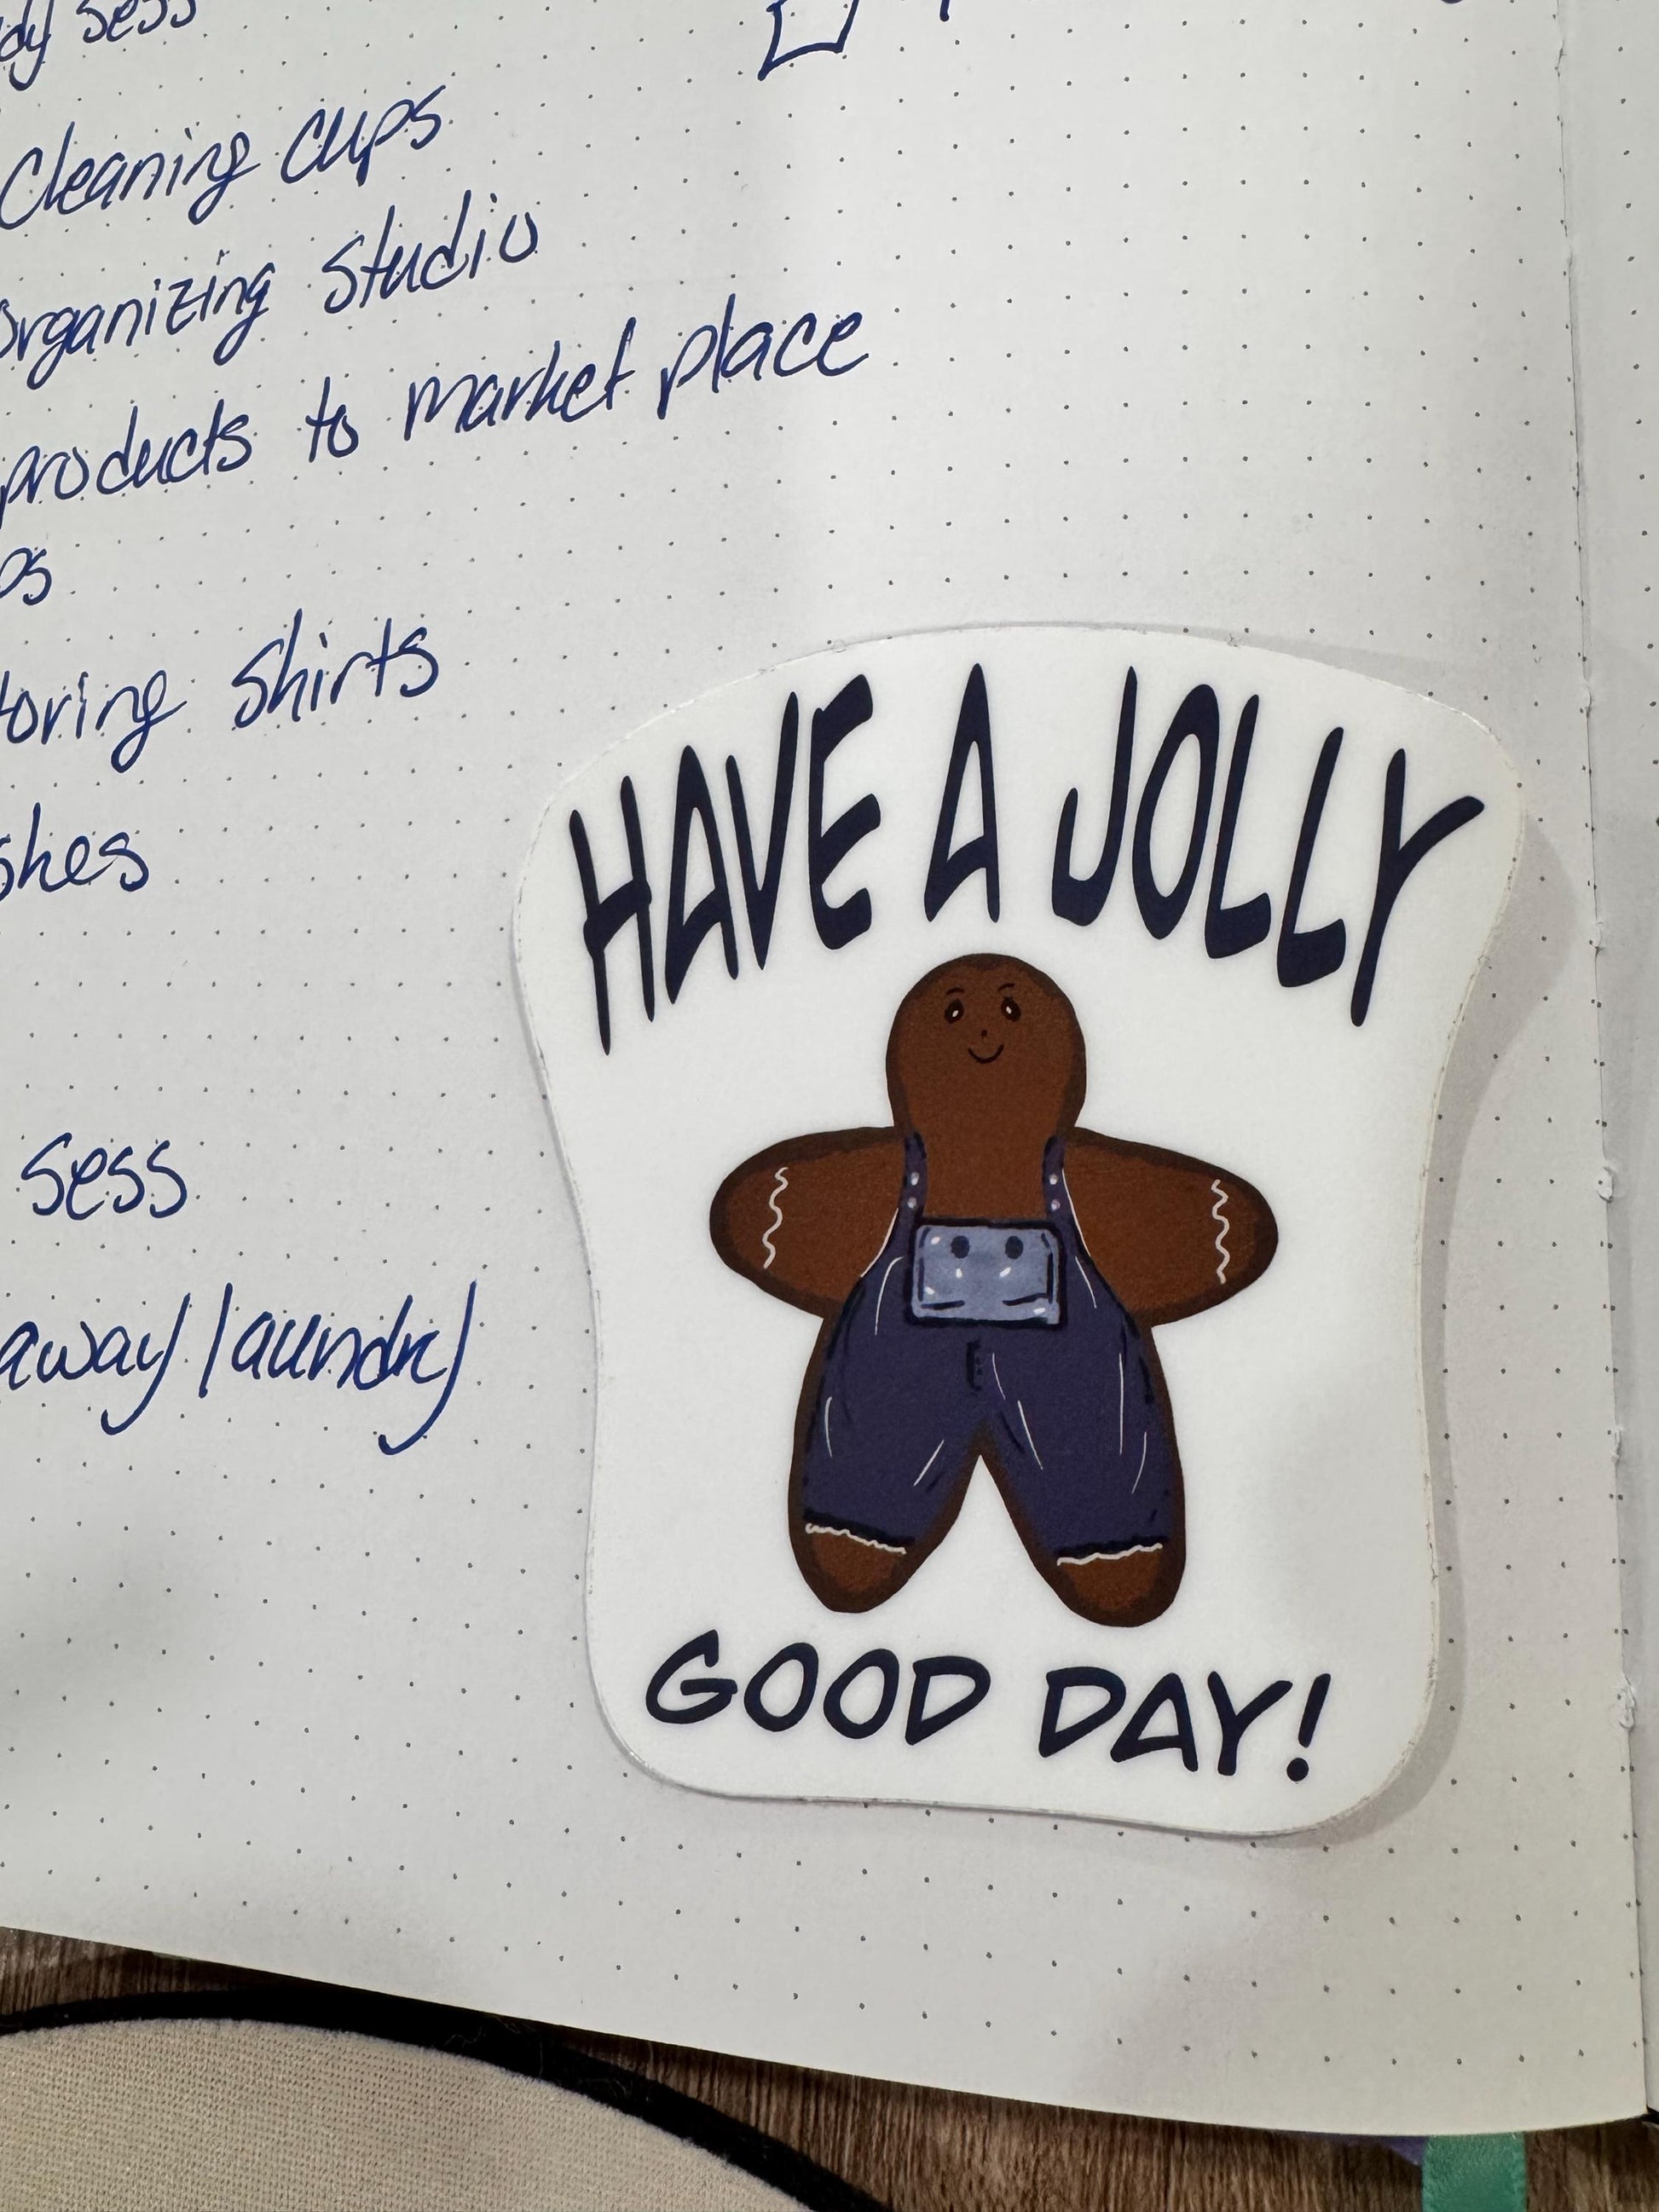 sess
Cleaning cups
organizing studio
products to market place
shirts
sess
away laundry
HAVE A JOLLY
GOOD DAY!